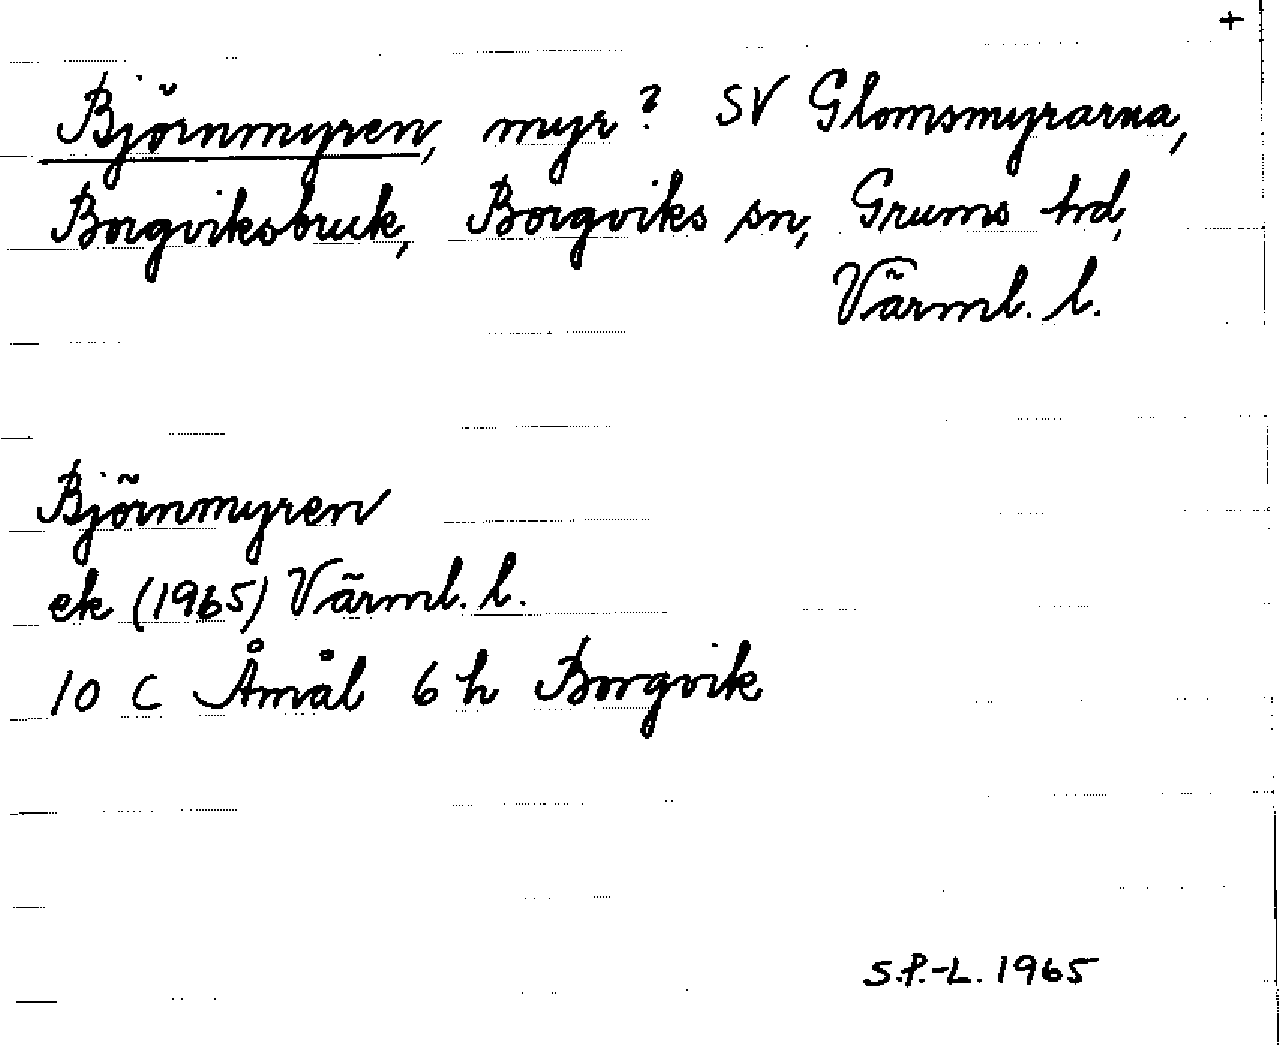 +
Björnmyren, myr? SV Glomsmyrarna,
Borgviksbruk, Borgviks sn, Grums hd,
Värml. l.
Björnmyren
ek (1965) Värml. l.
10 C Åmål 6 h Borgvik
S.P.-L. 1965